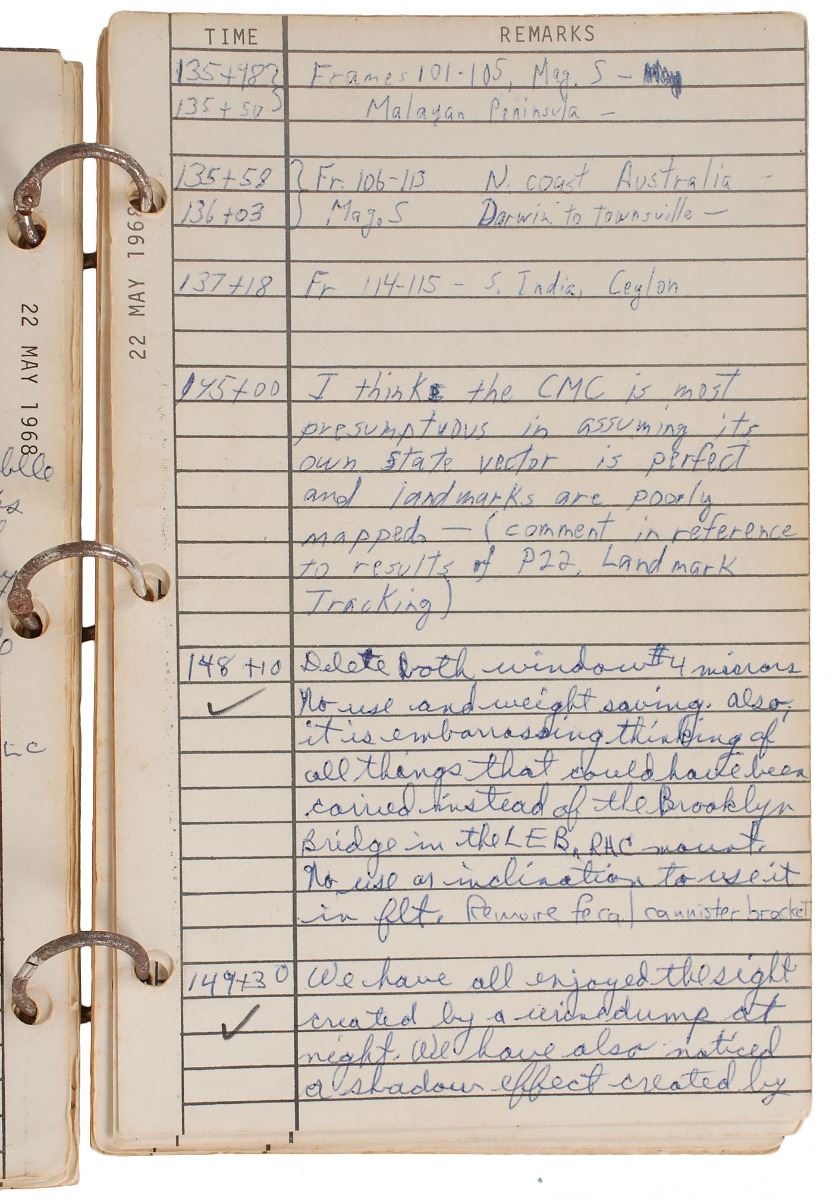 TIME REMARKS
135+48 Frames 101-105, Mag. S -
135+50 Malayan Peninsula -
135+58 Fr. 106-113 N. coast Australia -
136+03 Mag. S Darwin to Townsville -
137+18 Fr 114-115 - S. India, Ceylon
145+00 I think the CMC is most
presumptuous in assuming its
own state vector is perfect
and landmarks are poorly
mapped - (comment in reference
to results of P22, Landmark
Tracking)
148+10 Delete both window #4 mirrors
✓ No use and weight saving. Also,
it is embarrassing thinking of
all things that could have been
carried instead of the Brooklyn
Bridge in the LEB, RHC mount.
No use or inclination to use it
in flt. Remove fecal cannister bracket
149+30 We have all enjoyed the sight
✓ created by a urine dump at
night. We have also noticed
a shadow effect created by
22 MAY 1968
22 MAY 1968